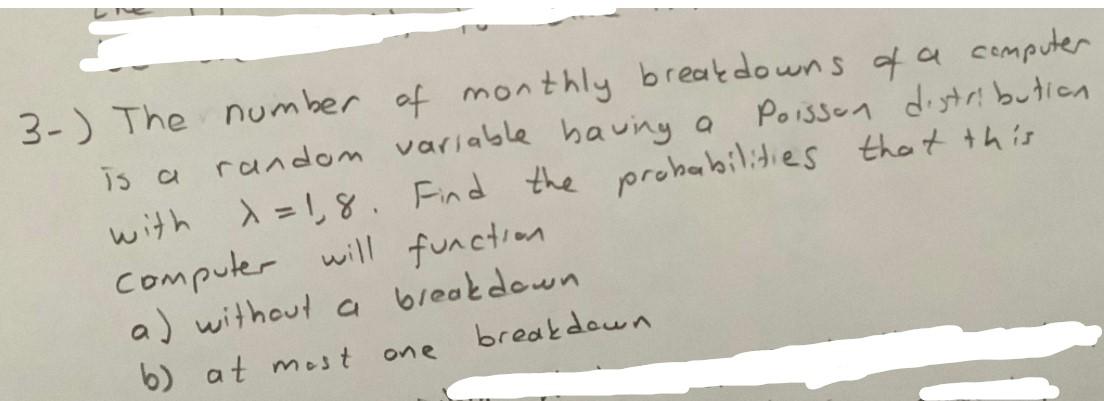 3-) The number of monthly breakdowns of a computer
is a random variable having a Poisson distribution
with λ = 1,8. Find the probabilities that this
computer will function
a) without a breakdown
b) at most one breakdown